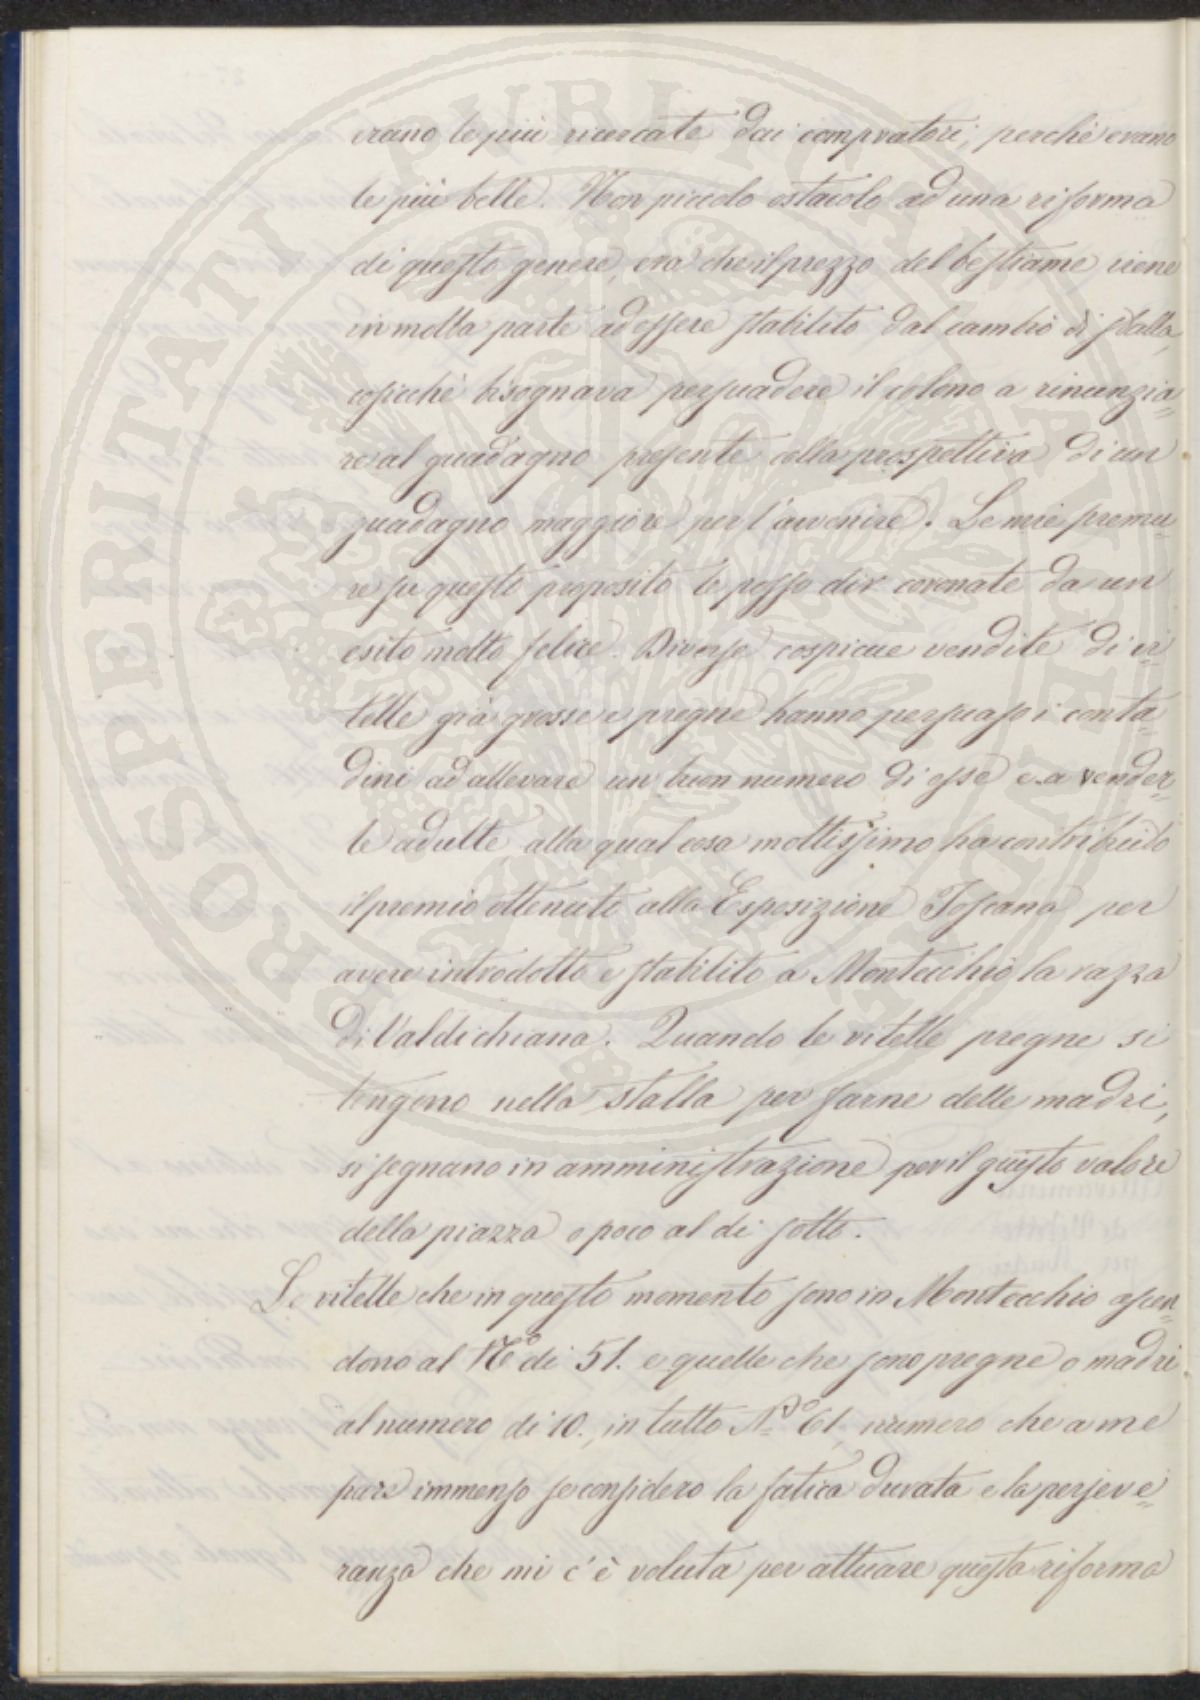 erano le più ricercate dai compratori, perchè erano
le più belle. Non piccolo ostacolo ad una riforma
di questo genere, era che il prezzo del bestiame viene
in molta parte ad essere stabilito dal cambio di stalla,
cosicchè bisognava persuadere il colono a rinunzia=
re al guadagno presente colla prospettiva di un
guadagno maggiore per l'avvenire. Le mie premu=
re su questo proposito le posso dir coronate da un
esito molto felice. Diverse cospicue vendite di vi=
telle già grosse e pregne hanno persuaso i conta=
dini ad allevare un buon numero di esse e a vender=
le adulte alla qual cosa moltissimo ha contribuito
il premio ottenuto alla Esposizione Toscana per
avere introdotto e stabilito a Montecchio la razza
di Valdichiana. Quando le vitelle pregne si
tengono nella stalla per farne delle madri,
si segnano in amministrazione per il giusto valore
della piazza o poco al di sotto.
Le vitelle che in questo momento sono in Montecchio ascen=
dono al No di 51. e quelle che sono pregne o madri
al numero di 10., in tutto No 61, numero che a me
pare immenso se considero la fatica durata e la perseve=
ranza che mi c'è voluta per attuare questa riforma
PROSPERITATI PUBLICAE